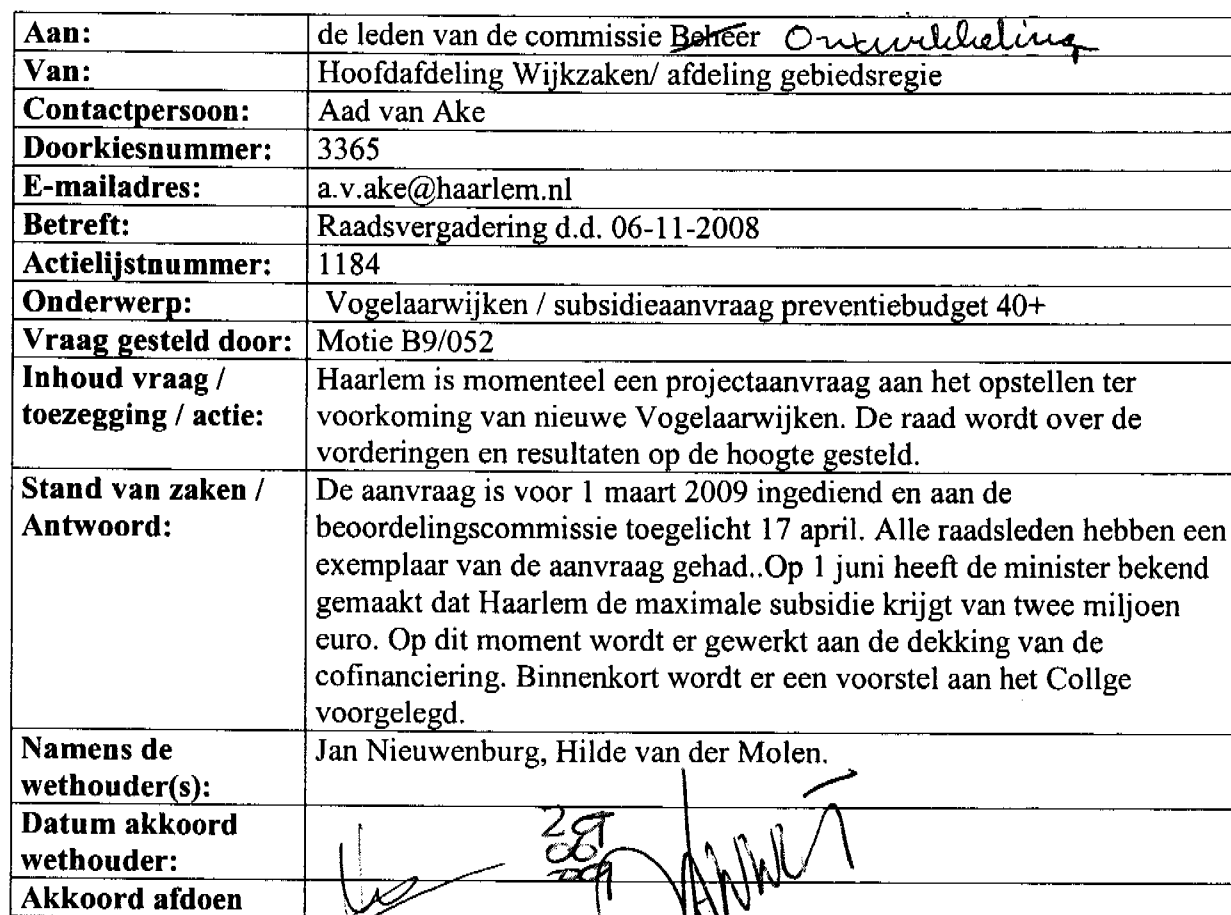 Aan: de leden van de commissie Beheer Ontwikkeling
Van: Hoofdafdeling Wijkzaken/ afdeling gebiedsregie
Contactpersoon: Aad van Ake
Doorkiesnummer: 3365
E-mailadres: a.v.ake@haarlem.nl
Betreft: Raadsvergadering d.d. 06-11-2008
Actielijstnummer: 1184
Onderwerp: Vogelaarwijken / subsidieaanvraag preventiebudget 40+
Vraag gesteld door: Motie B9/052
Inhoud vraag /
toezegging / actie:
Haarlem is momenteel een projectaanvraag aan het opstellen ter
voorkoming van nieuwe Vogelaarwijken. De raad wordt over de
vorderingen en resultaten op de hoogte gesteld.
Stand van zaken /
Antwoord:
De aanvraag is voor 1 maart 2009 ingediend en aan de
beoordelingscommissie toegelicht 17 april. Alle raadsleden hebben een
exemplaar van de aanvraag gehad..Op 1 juni heeft de minister bekend
gemaakt dat Haarlem de maximale subsidie krijgt van twee miljoen
euro. Op dit moment wordt er gewerkt aan de dekking van de
cofinanciering. Binnenkort wordt er een voorstel aan het Collge
voorgelegd.
Namens de
wethouder(s):
Jan Nieuwenburg, Hilde van der Molen.
Datum akkoord
wethouder:
29
06
09
Akkoord afdoen